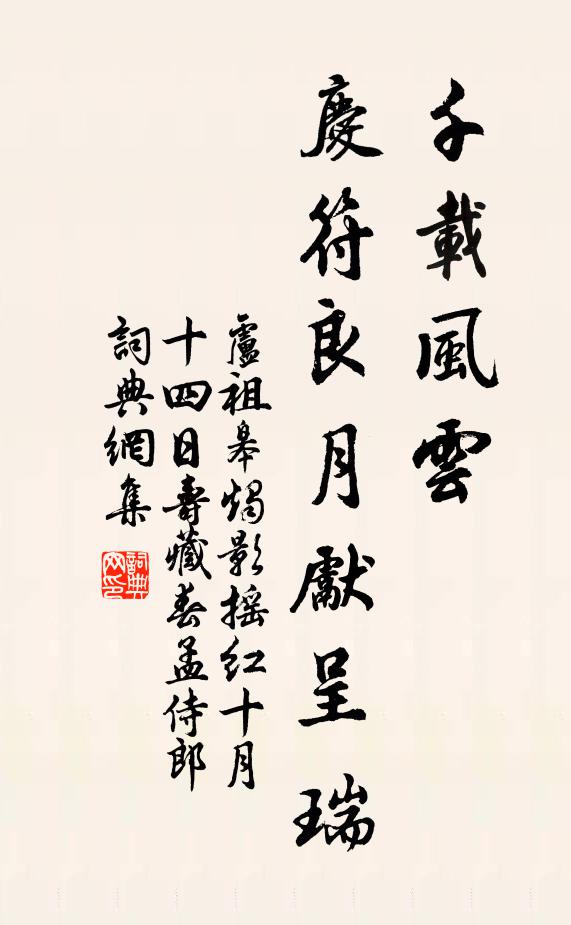 千載風雲
慶符良月獻呈瑞
盧祖皋燭影搖紅十月
十四日壽藏春孟侍郎
詞典網集
詞典
网印